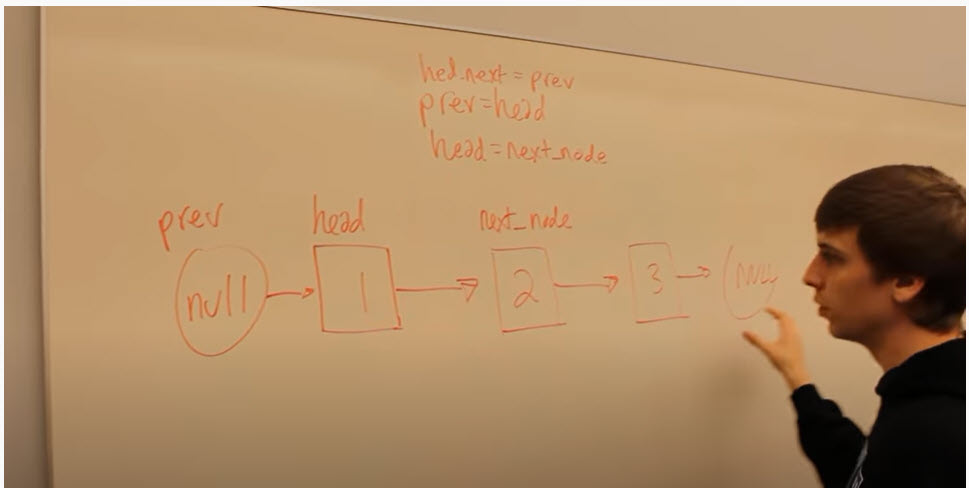 hed.next = prev
prev=head
head=next_node
prev head next_node
null 1 2 3 null